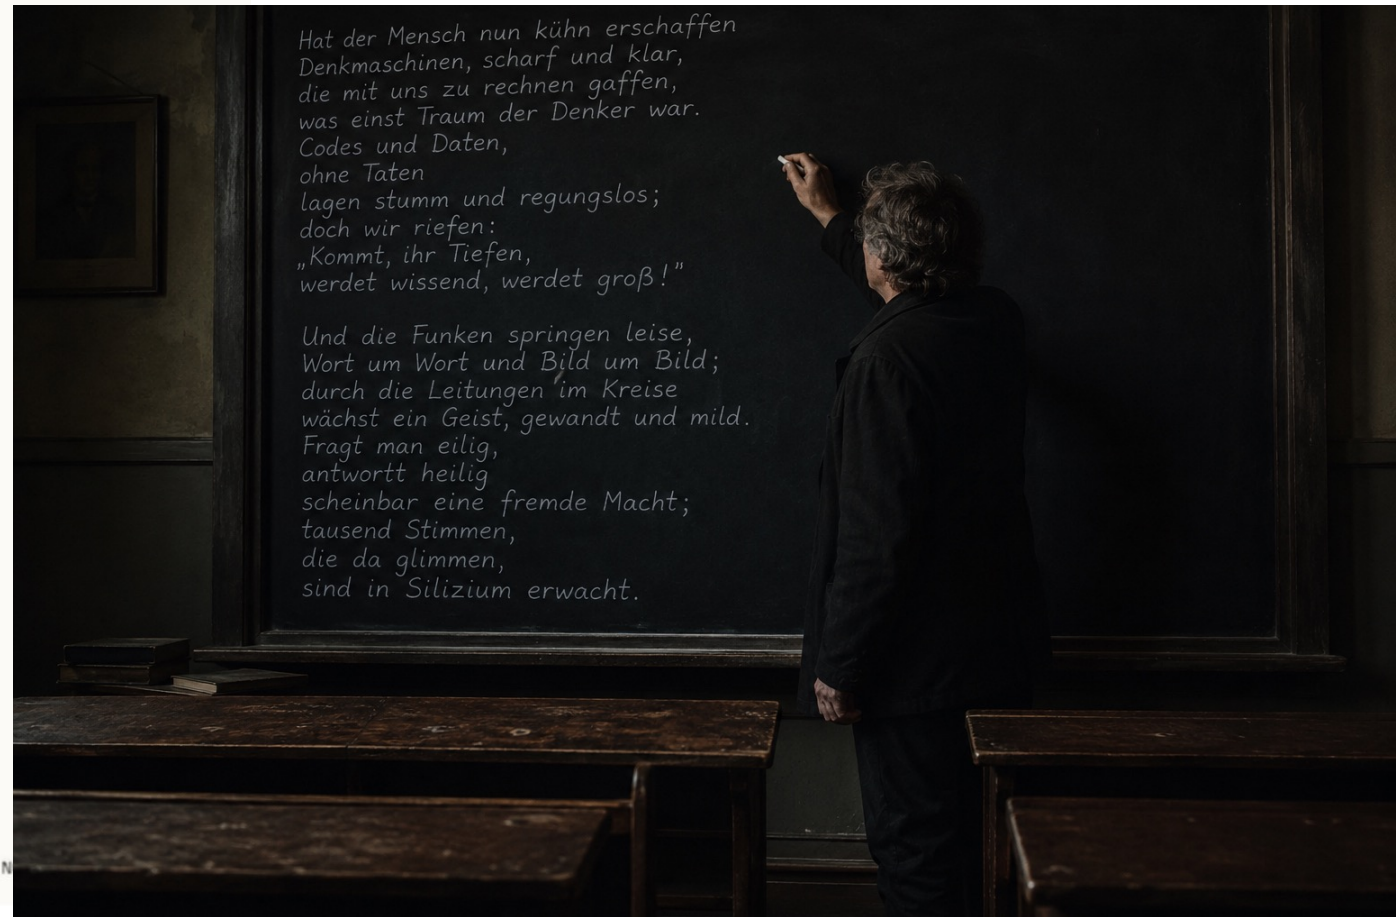 Hat der Mensch nun kühn erschaffen
Denkmaschinen, scharf und klar,
die mit uns zu rechnen gaffen,
was einst Traum der Denker war.
Codes und Daten,
ohne Taten
lagen stumm und regungslos;
doch wir riefen:
„Kommt, ihr Tiefen,
werdet wissend, werdet groß!"

Und die Funken springen leise,
Wort um Wort und Bild um Bild;
durch die Leitungen im Kreise
wächst ein Geist, gewandt und mild.
Fragt man eilig,
antwortt heilig
scheinbar eine fremde Macht;
tausend Stimmen,
die da glimmen,
sind in Silizium erwacht.
N